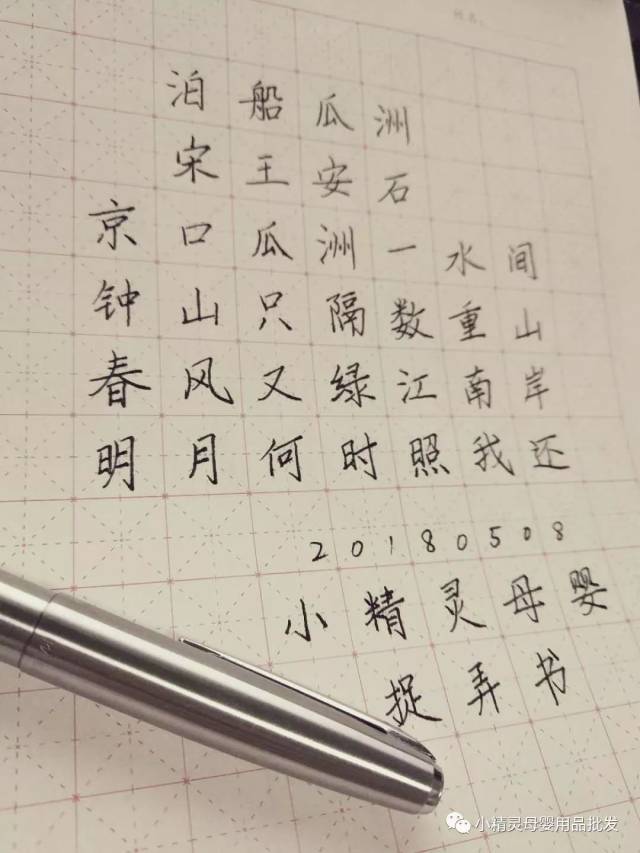 泊船瓜洲
宋王安石
京口瓜洲一水间
钟山只隔数重山
春风又绿江南岸
明月何时照我还
20180508
小精灵母婴
捉弄书
小精灵母婴用品批发